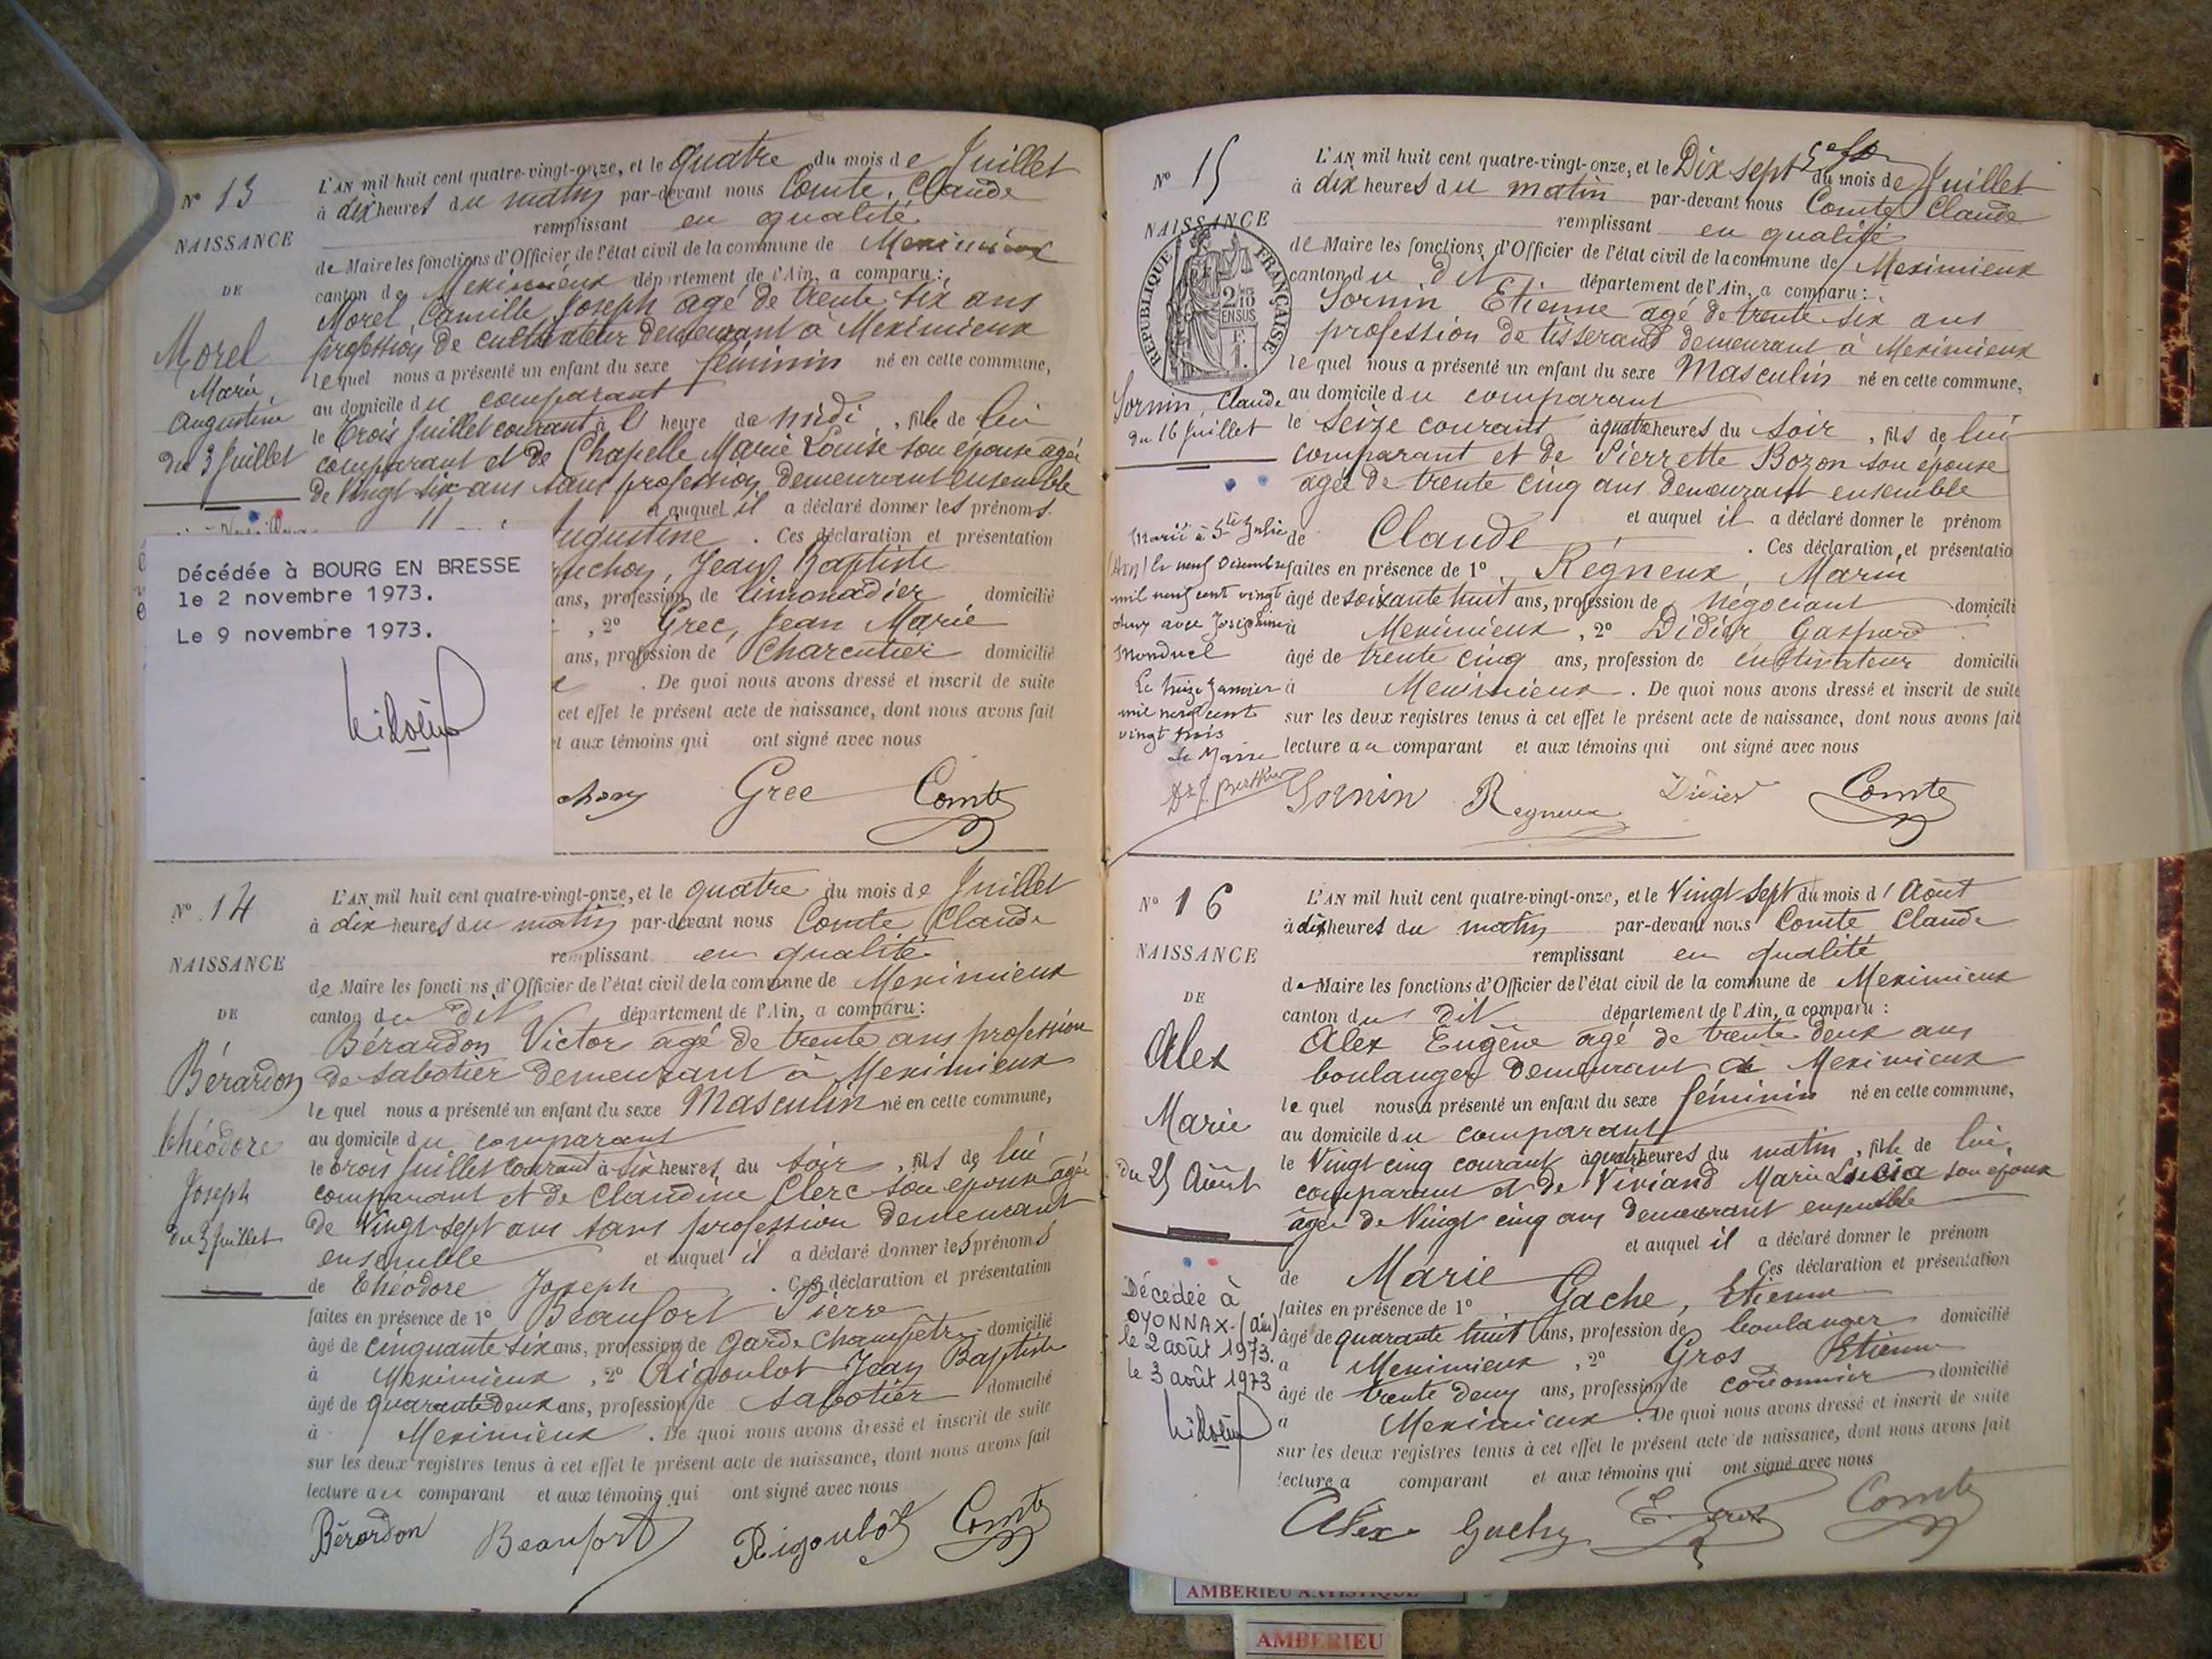 N° 13
NAISSANCE
DE
Morel
Marie
Augustine
du 3 Juillet
L'AN mil huit cent quatre-vingt-onze, et le Quatre du mois de Juillet
à dix heures du matin par-devant nous Comte, Claude
remplissant en qualité
de Maire les fonctions d'Officier de l'état civil de la commune de Meximieux
canton de Meximieux département de l'Ain, a comparu :
Morel, Camille Joseph agé de trente six ans
profession de cultivateur demeurant à Meximieux
lequel nous a présenté un enfant du sexe féminin né en cette commune,
au domicile du comparant
le trois Juillet courant à l' heure de midi, fille de lui
comparant et de Chapelle Marie Louise son épouse agée
de Vingt six ans sans profession demeurant ensemble
et auquel il a déclaré donner les prénoms
ugustine. Ces déclaration et présentation
Jean Baptiste
ans, profession de limonadier domicilié
, 2° Grec, Jean Marie
ans, profession de Charcutier domicilié
. De quoi nous avons dressé et inscrit de suite
cet effet le présent acte de naissance, dont nous avons fait
et aux témoins qui ont signé avec nous
Grec Comte
Décédée à BOURG EN BRESSE
le 2 novembre 1973.
Le 9 novembre 1973.
N° 14
NAISSANCE
DE
Bérardon
théodore
Joseph
du 3 Juillet
L'AN mil huit cent quatre-vingt-onze, et le quatre du mois de Juillet
à dix heures du matin par-devant nous Comte Claude
remplissant en qualité
de Maire les fonctions d'Officier de l'état civil de la commune de Meximieux
canton du dit département de l'Ain, a comparu :
Bérardon Victor agé de trente ans profession
de sabotier demeurant à Meximieux
lequel nous a présenté un enfant du sexe Masculin né en cette commune,
au domicile du comparant
le trois Juillet courant à six heures du soir, fils de lui
comparant et de Claudine Clerc son épouse agée
de Vingt sept ans sans profession demeurant
ensemble et auquel il a déclaré donner les prénoms
de théodore Joseph. Ces déclaration et présentation
faites en présence de 1° Beaufort Pierre
âgé de cinquante six ans, profession de Garde Champêtre domicilié
à Meximieux, 2° Rigoulot Jean Baptiste
âgé de quarante deux ans, profession de sabotier domicilié
à Meximieux. De quoi nous avons dressé et inscrit de suite
sur les deux registres tenus à cet effet le présent acte de naissance, dont nous avons fait
lecture au comparant et aux témoins qui ont signé avec nous
Bérardon Beaufort Rigoulot Comte
N° 15
NAISSANCE
REPUBLIQUE FRANÇAISE
2/10 EN SUS
Sornin, Claude
du 16 Juillet
L'AN mil huit cent quatre-vingt-onze, et le Dix sept du mois de Juillet
à dix heures du matin par-devant nous Comte Claude
remplissant en qualité
de Maire les fonctions d'Officier de l'état civil de la commune de Meximieux
canton du dit département de l'Ain, a comparu :
Sornin Etienne agé de trente six ans
profession de tisserand demeurant à Meximieux
lequel nous a présenté un enfant du sexe Masculin né en cette commune,
au domicile du comparant
le seize courant à quatre heures du soir, fils de lui
comparant et de Pierrette Bozon son épouse
agée de trente cinq ans demeurant ensemble
et auquel il a déclaré donner le prénom
de Claude. Ces déclaration, et présentatio
faites en présence de 1° Régneux, Marin
âgé de soixante huit ans, profession de négociant domicili
à Meximieux, 2° Didier Gaspard
âgé de trente cinq ans, profession de cultivateur domicili
à Meximieux. De quoi nous avons dressé et inscrit de suite
sur les deux registres tenus à cet effet le présent acte de naissance, dont nous avons fait
lecture au comparant et aux témoins qui ont signé avec nous
Sornin Regneux Didier Comte
Marié à Ste Julie
(Ain) le neuf Décembre
mil neuf cent vingt
deux avec Joséphine
Monduel
Le treize Janvier
mil neuf cent
vingt trois
Le Maire
N° 16
NAISSANCE
DE
Alex
Marie
du 25 Août
L'AN mil huit cent quatre-vingt-onze, et le Vingt sept du mois d'Août
à dix heures du matin par-devant nous Comte Claude
remplissant en qualité
de Maire les fonctions d'Officier de l'état civil de la commune de Meximieux
canton du dit département de l'Ain, a comparu :
Alex Eugène agé de trente deux ans
boulanger demeurant à Meximieux
lequel nous a présenté un enfant du sexe féminin né en cette commune,
au domicile du comparant
le Vingt cinq courant à quatre heures du matin, fille de lui
comparant et de Viviand Marie Lucia son épouse
agée de Vingt cinq ans demeurant ensemble
et auquel il a déclaré donner le prénom
de Marie Ces déclaration et présentation
faites en présence de 1° Gache, Etienne
âgé de quarante huit ans, profession de boulanger domicilié
à Meximieux, 2° Gros Etienne
âgé de trente deux ans, profession de cordonnier domicilié
à Meximieux. De quoi nous avons dressé et inscrit de suite
sur les deux registres tenus à cet effet le présent acte de naissance, dont nous avons fait
lecture a comparant et aux témoins qui ont signé avec nous
Alex Gache E. Gros Comte
Décédée à
OYONNAX (Ain)
le 2 août 1973.
le 3 août 1973
AMBERIEU
AMBERIEU